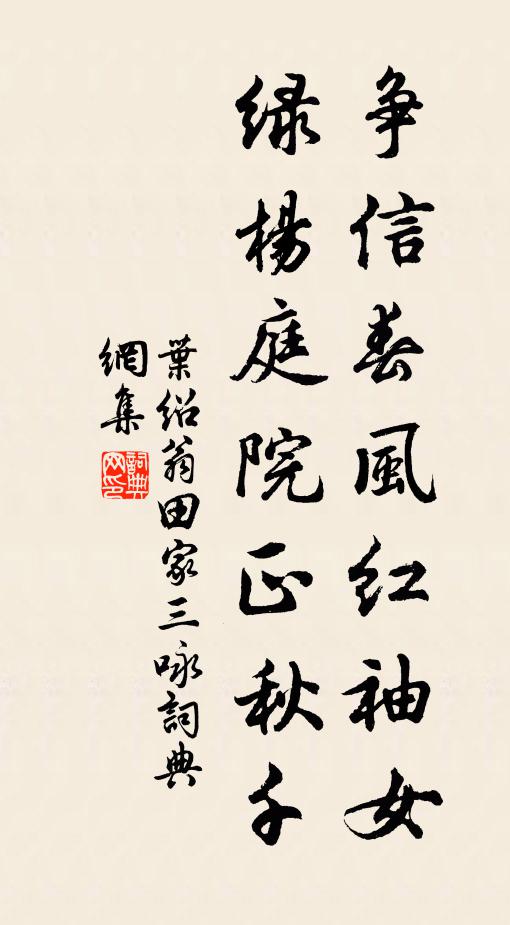 争信春風紅袖女
緑楊庭院正秋千
葉紹翁田家三咏詞典
網集
詞典
网印